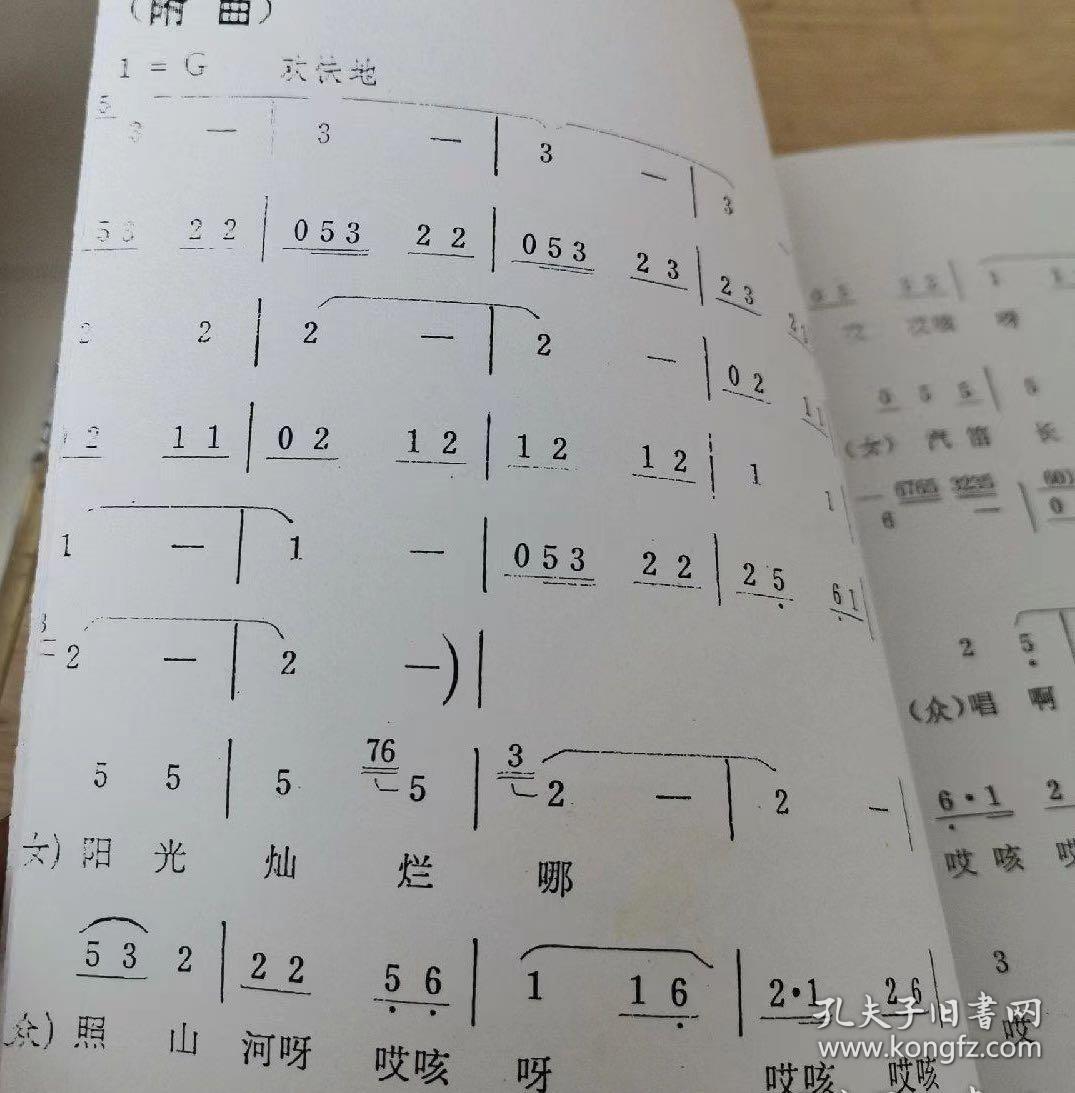 （附 曲）
1 = G 欢快地
5 3 — 3 — | 3 — | 3
53 22 | 053 22 | 053 23 | 23 21
2 2 | 2 — | 2 — | 02 11
12 11 | 02 12 | 12 12 | 1 1 |
1 — | 1 — | 053 22 | 25 61 |
3 2 — | 2 —) |
5 5 | 5 76 5 | 3 2 — | 2 — |
女) 阳 光 灿 烂 哪
53 2 | 22 56 | 1 16 | 2·1 26 |
众) 照 山 河呀 哎咳 呀 哎咳 哎咳
05 55 | 1 1
哎咳 呀
0 5 5 | 6
(女) 汽 笛 长
— 6765 3235 |
6 — | 0
2 5
(众)唱 啊
6·1 2
哎 咳 哎
3
哎
孔夫子旧書网
www.kongfz.com